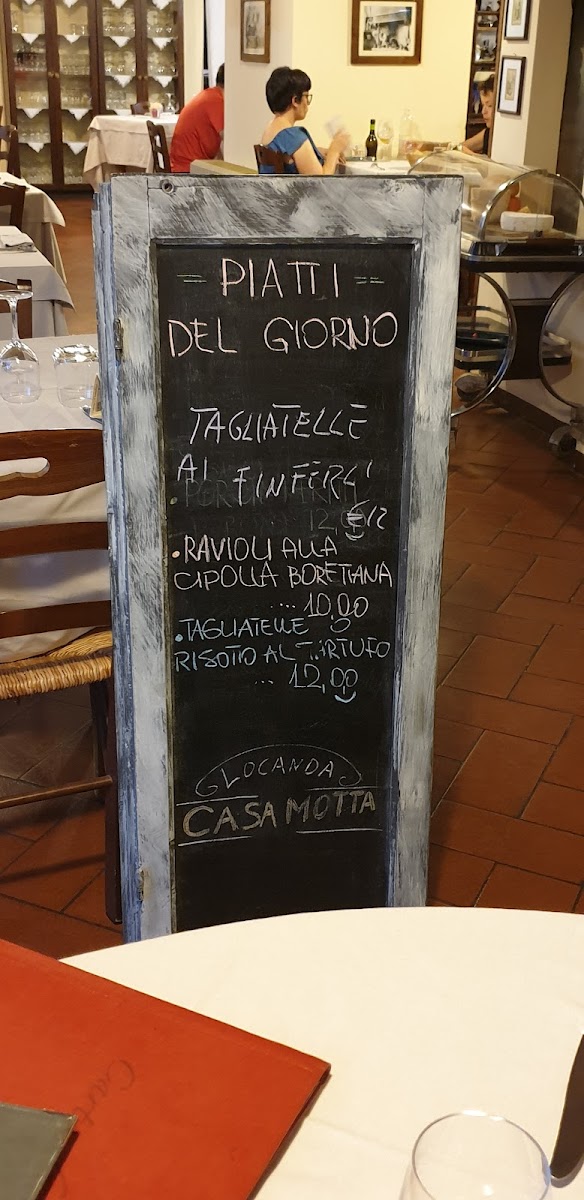 = PIATTI =
DEL GIORNO
TAGLIATELLE
AI FINFERLI
€12
• RAVIOLI ALLA
CIPOLLA BORETTANA
.... 10,00
• TAGLIATELLE O
RISOTTO AL TARTUFO
... 12,00
LOCANDA
CASA MOTTA